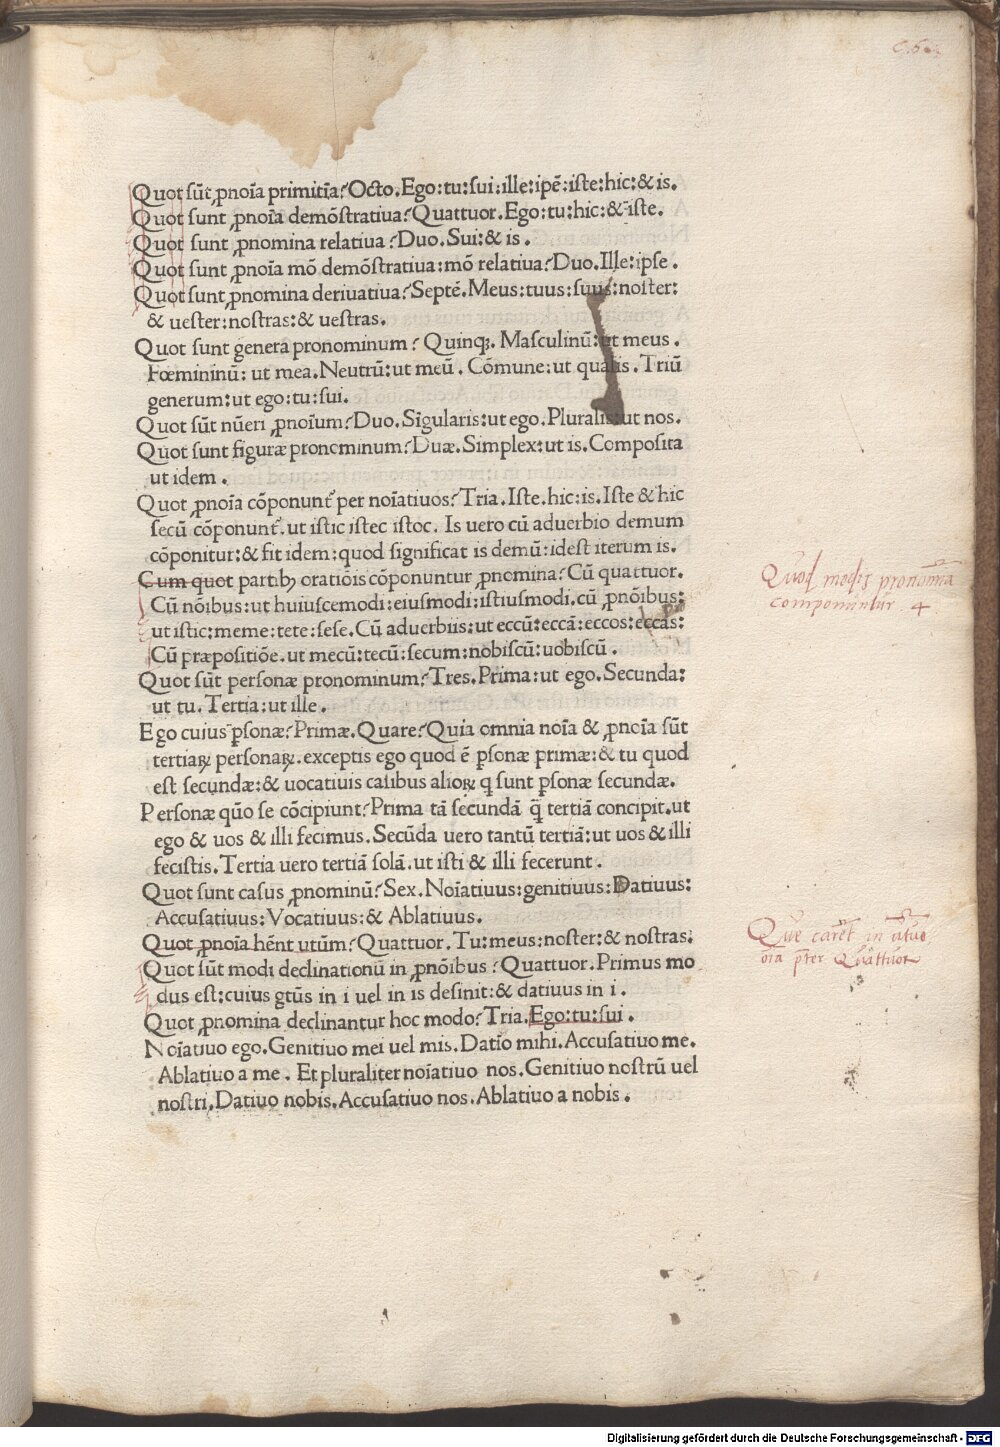 Quot sūt ꝓnoīa primitīa? Octo. Ego: tu: sui: ille: ipē: iste: hic: & is.
Quot sunt ꝓnoīa demōstratiua? Quattuor. Ego: tu: hic: & iste.
Quot sunt ꝓnomina relatiua? Duo. Sui: & is.
Quot sunt ꝓnoīa mō demōstratiua: mō relatiua? Duo. Ille: ipse.
Quot sunt ꝓnomina deriuatiua? Septē. Meus: tuus: suus: noster:
& uester: nostras: & uestras.
Quot sunt genera pronominum? Quinqꝫ. Masculinū: ut meus.
Fœmininū: ut mea. Neutrū: ut meū. Cōmune: ut qualis. Triū
generum: ut ego: tu: sui.
Quot sūt nūeri ꝓnoīum? Duo. Sīgularis: ut ego. Pluralis: ut nos.
Quot sunt figuræ pronominum? Duæ. Simplex: ut is. Composita
ut idem.
Quot ꝓnoīa cōponunt᷑ per noīatiuos? Tria. Iste. hic: is. Iste & hic
secū cōponunt᷑. ut istic istec istoc. Is uero cū aduerbio demum
cōponitur: & fit idem: quod significat is demū: idest iterum is.
Cum quot partibꝫ oratiōis cōponuntur ꝓnomina? Cū quattuor.
Cū nōibus: ut huiuscemodi: eiusmodi: istiusmodi. cū ꝓnōibus:
ut istic: meme: tete: sese. Cū aduerbiis: ut eccū: eccā: eccos: eccas:
Cū præpositiōe. ut mecū: tecū: secum: nobiscū: uobiscū.
Quot sūt personæ pronominum? Tres. Prima: ut ego. Secunda:
ut tu. Tertia: ut ille.
Ego cuius ꝑsonæ? Primæ. Quare? Quia omnia noīa & ꝓnoīa sūt
tertiaꝝ personaꝝ. exceptis ego quod ē ꝑsonæ primæ: & tu quod
est secundæ: & uocatiuis casibus alioꝝ q sunt ꝑsonæ secundæ.
Personæ quō se cōcipiunt? Prima tā secundā q̄ tertiā concipit. ut
ego & uos & illi fecimus. Secūda uero tantū tertiā: ut uos & illi
fecistis. Tertia uero tertiā solā. ut isti & illi fecerunt.
Quot sunt casus ꝓnominū? Sex. Noīatiuus: genitiuus: Datiuus:
Accusatiuus: Vocatiuus: & Ablatiuus.
Quot ꝓnoīa hēnt utūm? Quattuor. Tu: meus: noster: & nostras.
Quot sūt modi declinationū in ꝓnōibus? Quattuor. Primus mo
dus est: cuius gtūs in i uel in is desinit: & datiuus in i.
Quot ꝓnomina declinantur hoc modo? Tria. Ego: tu: sui.
Noīatiuo ego. Genitiuo mei uel mis. Datīo mihi. Accusatiuo me.
Ablatiuo a me. Et pluraliter noīatiuo nos. Genitiuo nostrū uel
nostri. Datiuo nobis. Accusatiuo nos. Ablatiuo a nobis.
Quod modis pronomīa
componūntur 4
Que caret in
oīa pter Quattuor
Digitalisierung gefördert durch die Deutsche Forschungsgemeinschaft - DFG